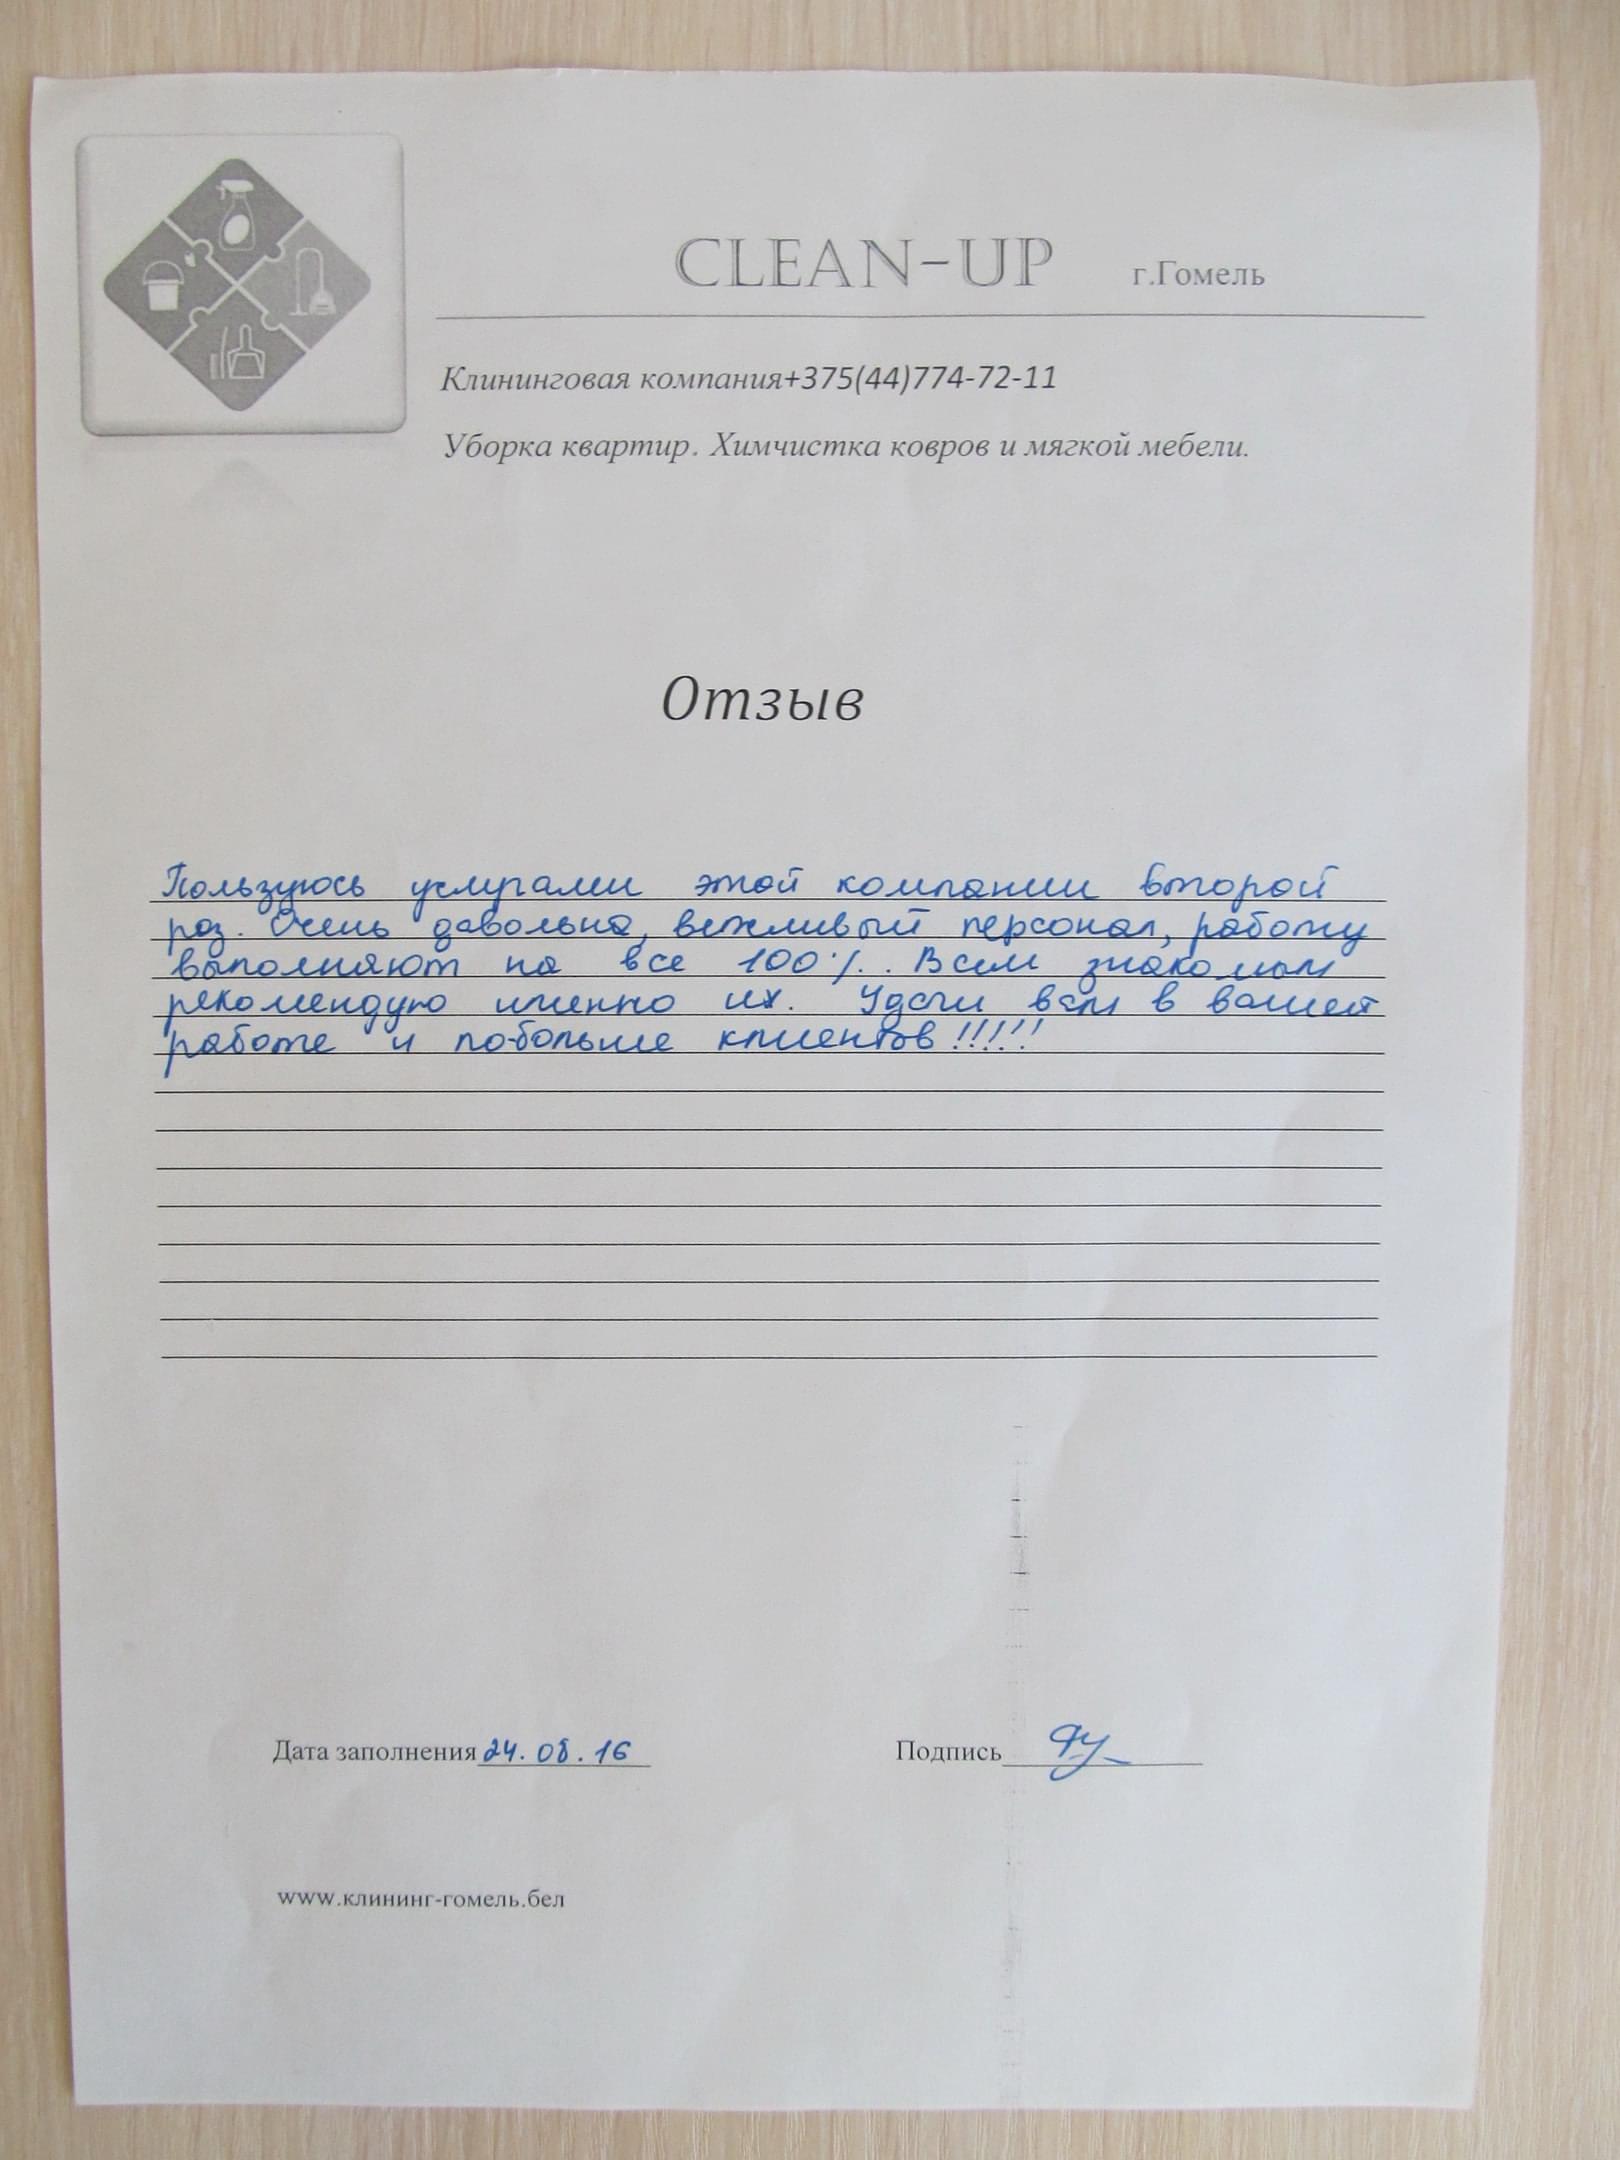 CLEAN-UP г.Гомель
Клининговая компания+375(44)774-72-11
Уборка квартир. Химчистка ковров и мягкой мебели.
Отзыв
Пользуюсь услугами этой компании второй
раз. Очень давольна, вежливый персонал, работу
выполняют на все 100%. Всем знакомым
рекомендую именно их. Удачи вам в вашей
работе и по-больше клиентов!!!!!
Дата заполнения 24.08.16 Подпись
www.клининг-гомель.бел